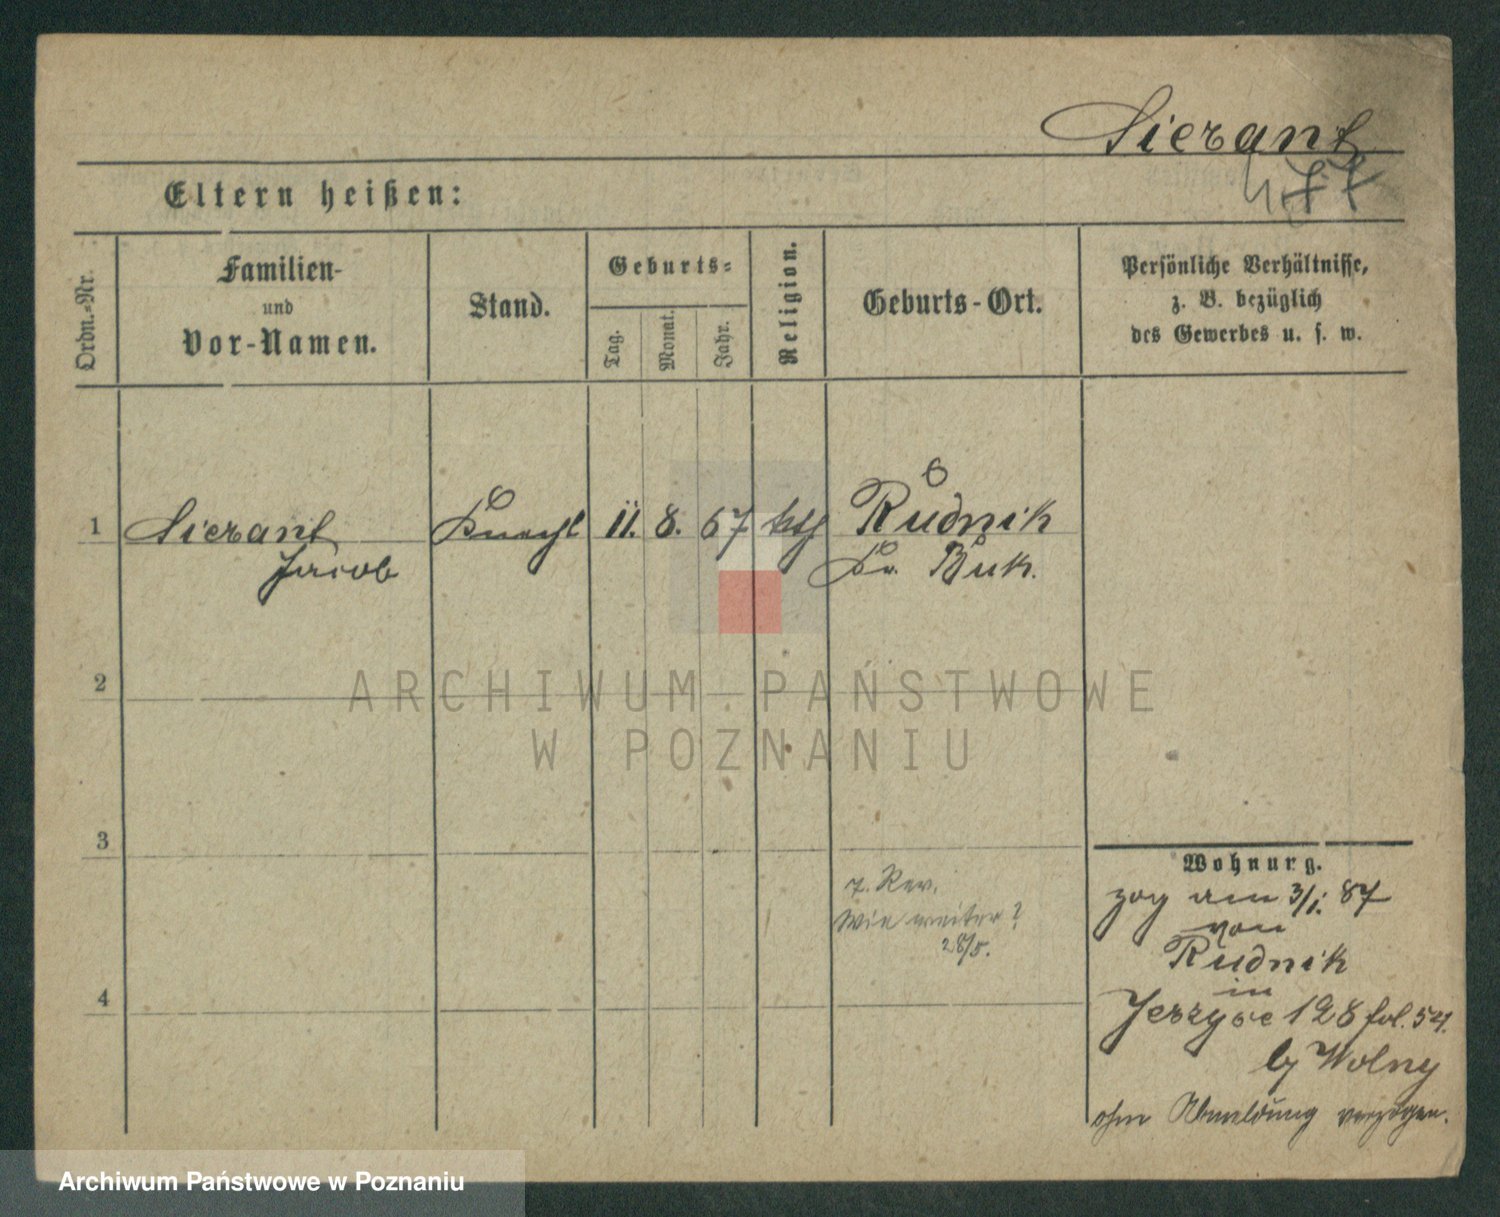 Sierant
Eltern heißen:
Ordn.-Nr.
Familien-
und
Vor-Namen.
Stand.
Geburts-
Tag.
Monat.
Jahr.
Religion.
Geburts-Ort.
Persönliche Verhältnisse,
z. B. bezüglich
des Gewerbes u. s. w.
1 Sierant Knecht 11. 8. 67 kth Rudnik
Jacob Kr. Buk.
2
ARCHIWUM PAŃSTWOWE
W POZNANIU
3
Wohnung.
z. Rev.
Wie weiter?
28/5.
zog am 3/1. 87
von
Rudnik
in
4
Jerzyce 128 fol. 54.
by Wolny
ohne Abmeldung verzogen.
Archiwum Państwowe w Poznaniu